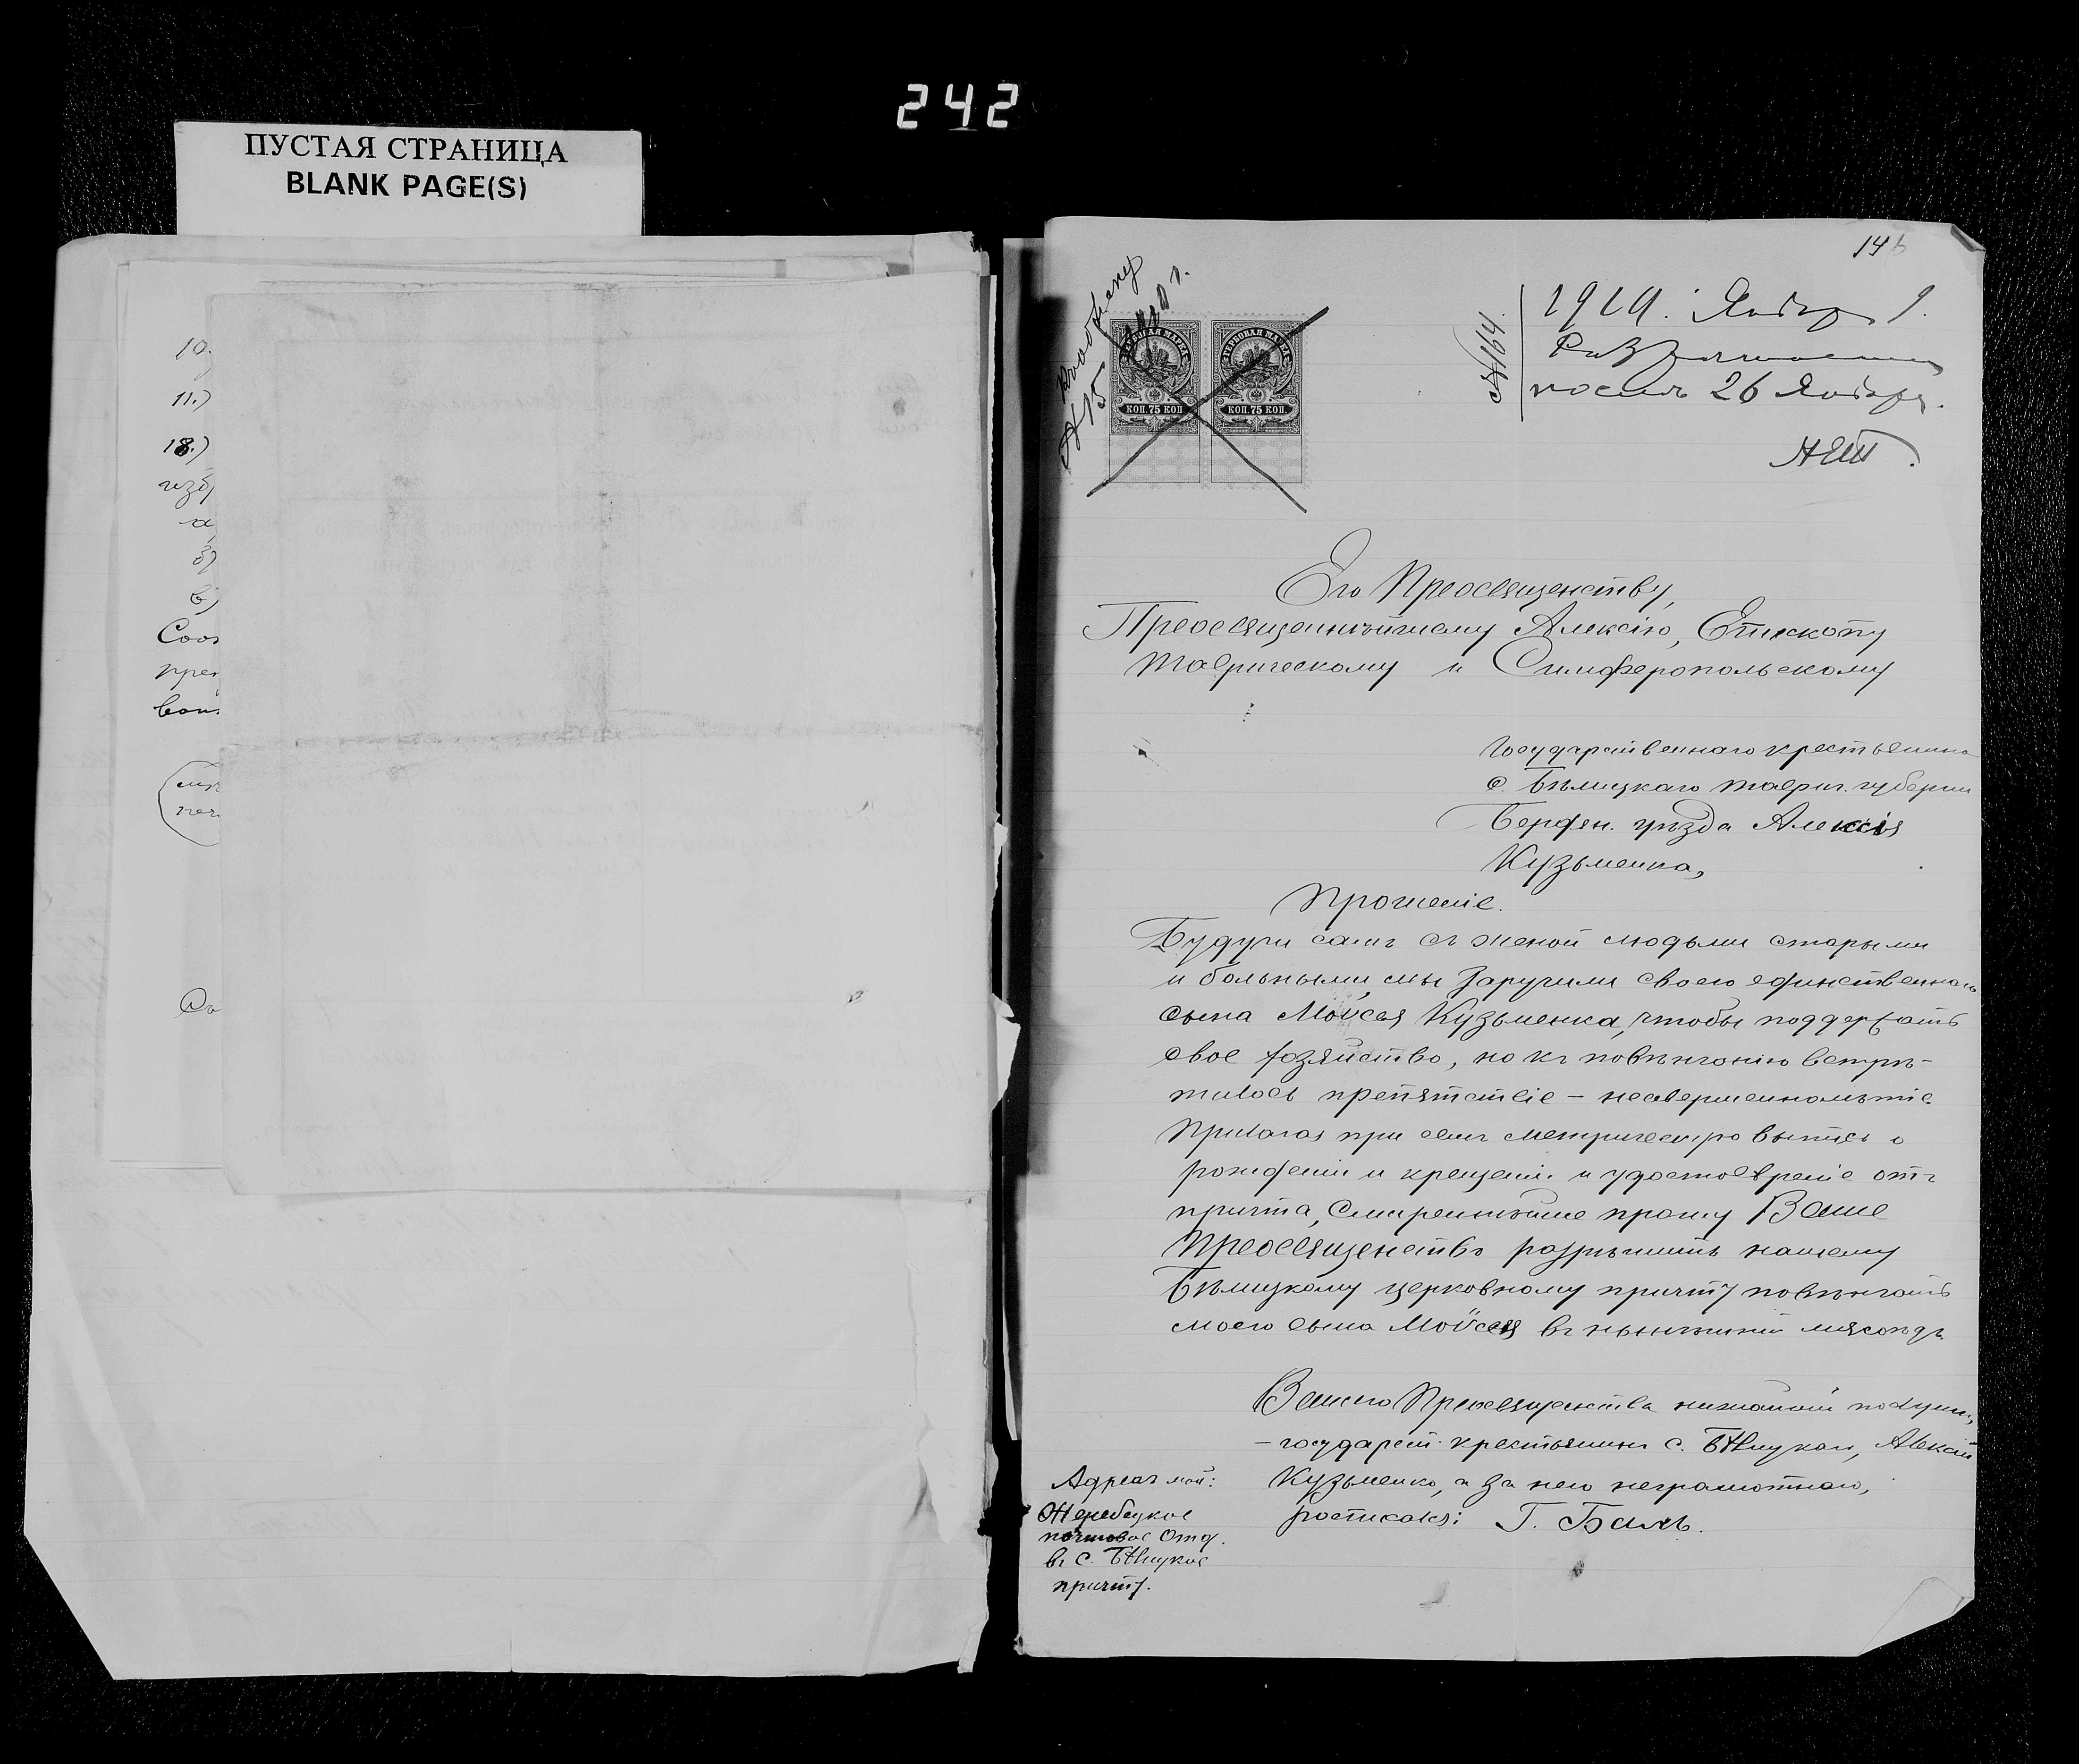 242
ПУСТАЯ СТРАНИЦА
BLANK PAGE(S)
10.
11.)
18.)
а)
б)
в)
Соот
146
№ 164.
1910. Января 9.
послѣ 26 Января.
№ 15
1910 г.
ГЕРБОВАЯ МАРКА
КОП. 75 КОП
ГЕРБОВАЯ МАРКА
КОП. 75 КОП
Его Преосвященству,
Преосвященнѣйшему Алексію, Епископу
Таврическому и Симферопольскому
Государственнаго крестьянина
с. Бѣлицкаго Таврич. губерніи
Бердян. уѣзда Алексія
Кузьменка,
Прошеніе.
Будучи самъ съ женой людьми старыми
и больными, мы заручили своего единственнаго
сына Моисея Кузьменка, чтобы поддержать
свое хозяйство, но къ повѣнчанію встрѣ-
тилось препятствіе – несовершеннолѣтіе
Прилагая при семъ метрическую выпись о
рожденіи и крещеніи и удостовѣреніе отъ
причта, смиреннѣйше прошу Ваше
Преосвященство разрѣшить нашему
Бѣлицкому церковному причту повѣнчать
моего сына Моисея въ нынѣшній мясоѣдъ
Вашего Преосвященства нижайшій послушн.,
– государст. крестьянинъ с. Бѣлицкаго, Алексій
Кузьменко, а за него неграмотнаго,
росписался: Г. Баль.
Адресъ мой:
Жеребецкое
почтовое Отд.
въ с. Бѣлицкое
причту.